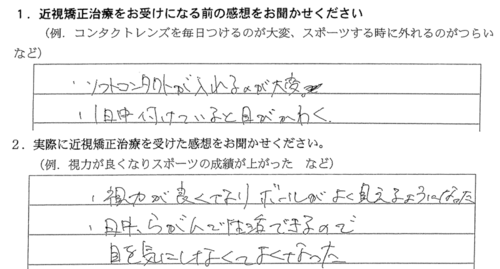 １．近視矯正治療をお受けになる前の感想をお聞かせください
（例．コンタクトレンズを毎日つけるのが大変、スポーツする時に外れるのがつらい
など）
・ソフトコンタクトが入れるのが大変。
・１日中付けていると目がかわく。
２．実際に近視矯正治療を受けた感想をお聞かせください。
（例．視力が良くなりスポーツの成績が上がった　など）
・視力が良くなりボールがよく見えるようになった
・日中、らがんで生活できるので
目を気にしなくてよくなった